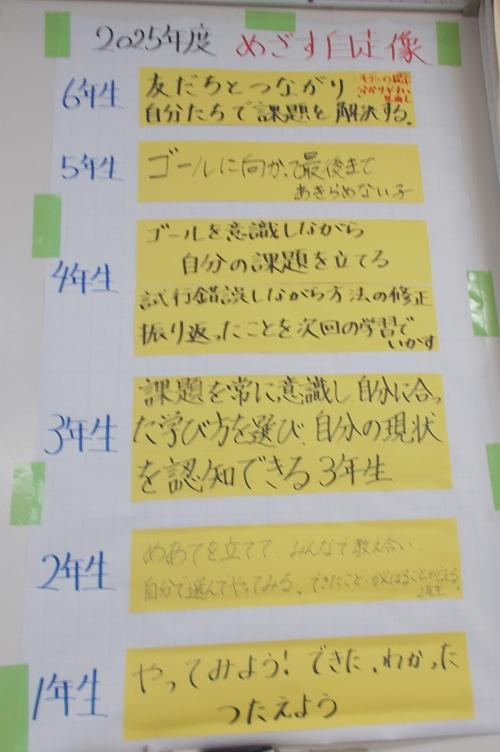 2025年度 めざす自走像
6年生
友だちとつながり
自分たちで課題を解決する。
5年生
ゴールに向かって最後まで
あきらめない子
4年生
ゴールを意識しながら
自分の課題を立てる
試行錯誤しながら方法の修正
振り返ったことを次回の学習で
いかす
3年生
課題を常に意識し自分に合っ
た学び方を選び、自分の現状
を認知できる3年生
2年生
めあてを立てて、みんなで教え合い、
自分で選んでやってみる。できたこと・がんばることが
2年生
1年生
やってみよう!できた、わかった
つたえよう